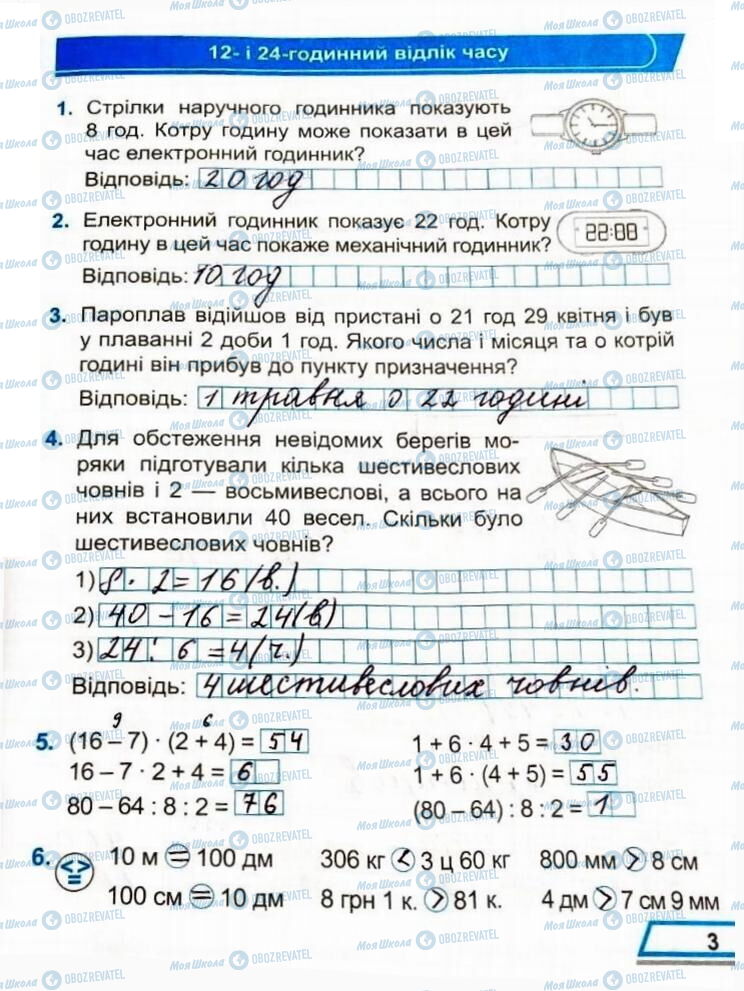 12- і 24-годинний відлік часу
1. Стрілки наручного годинника показують
8 год. Котру годину може показати в цей
час електронний годинник?
Відповідь: 20 год
2. Електронний годинник показує 22 год. Котру
годину в цей час покаже механічний годинник?
22:00
Відповідь: 10 год
3. Пароплав відійшов від пристані о 21 год 29 квітня і був
у плаванні 2 доби 1 год. Якого числа і місяця та о котрій
годині він прибув до пункту призначення?
Відповідь: 1 травня о 22 годині
4. Для обстеження невідомих берегів мо-
ряки підготували кілька шестивеслових
човнів і 2 — восьмивеслові, а всього на
них встановили 40 весел. Скільки було
шестивеслових човнів?
1) 8 · 2 = 16 (в.)
2) 40 – 16 = 24 (в)
3) 24 : 6 = 4 (ч.)
Відповідь: 4 шестивеслових човнів.
9 6
5. (16 – 7) · (2 + 4) = 54 1 + 6 · 4 + 5 = 30
16 – 7 · 2 + 4 = 6 1 + 6 · (4 + 5) = 55
80 – 64 : 8 : 2 = 76 (80 – 64) : 8 : 2 = 1
6. < > = 10 м = 100 дм 306 кг < 3 ц 60 кг 800 мм > 8 см
100 см = 10 дм 8 грн 1 к. > 81 к. 4 дм > 7 см 9 мм
3
Моя Школа OBOZREVATEL